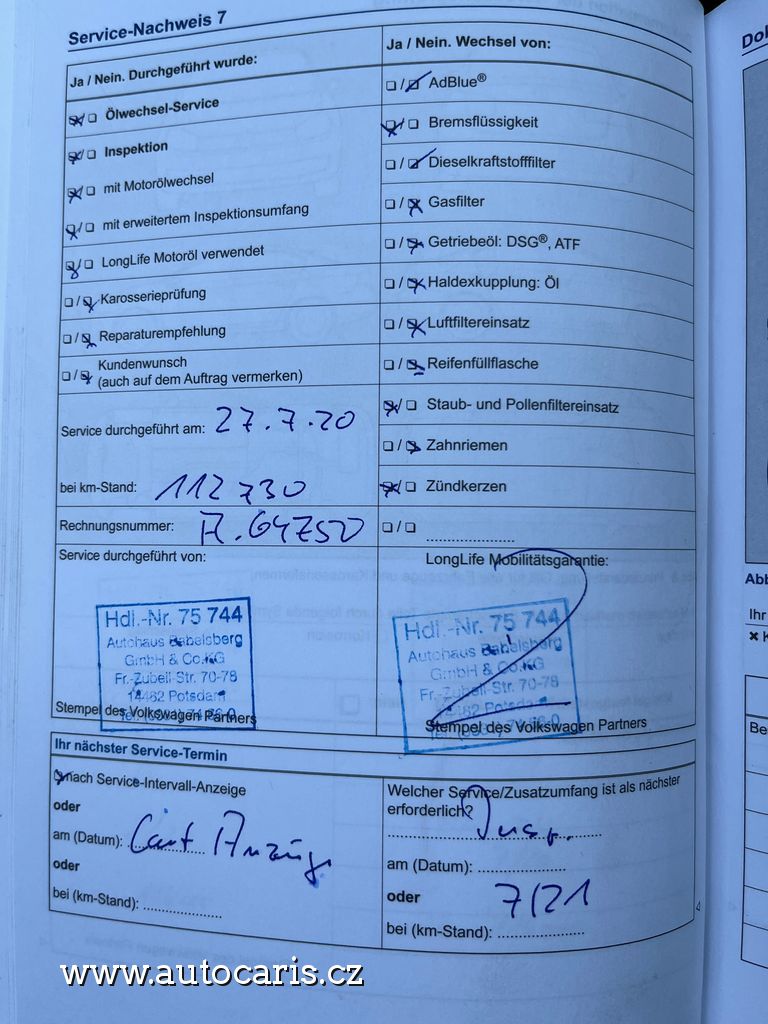 Service-Nachweis 7
Ja / Nein. Durchgeführt wurde:
Ölwechsel-Service
Inspektion
mit Motorölwechsel
mit erweitertem Inspektionsumfang
LongLife Motoröl verwendet
Karosserieprüfung
Reparaturempfehlung
Kundenwunsch
(auch auf dem Auftrag vermerken)
Service durchgeführt am: 27.7.20
bei km-Stand: 112 730
Rechnungsnummer: A.64750
Service durchgeführt von:
Hdl.-Nr. 75 744
Autohaus Babelsberg
GmbH & Co.KG
Fr.-Zubeil-Str. 70-78
14482 Potsdam
Stempel des Volkswagen Partners
Ja / Nein. Wechsel von:
AdBlue®
Bremsflüssigkeit
Dieselkraftstofffilter
Gasfilter
Getriebeöl: DSG®, ATF
Haldexkupplung: Öl
Luftfiltereinsatz
Reifenfüllflasche
Staub- und Pollenfiltereinsatz
Zahnriemen
Zündkerzen
LongLife Mobilitätsgarantie:
Hdl.-Nr. 75 744
Autohaus Babelsberg
GmbH & Co.KG
Fr.-Zubeil-Str. 70-78
14482 Potsdam
Stempel des Volkswagen Partners
Ihr nächster Service-Termin
nach Service-Intervall-Anzeige
oder
am (Datum): Laut Anzeige
oder
bei (km-Stand):
Welcher Service/Zusatzumfang ist als nächster
erforderlich?
Insp.
am (Datum):
oder 7/21
bei (km-Stand):
4
Dok
Abb
Ihr
Be
www.autocaris.cz